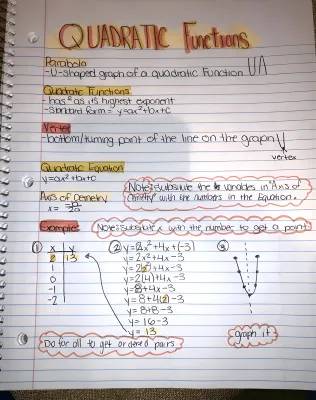 QUADRATIC Functions
Parabola
-U-shaped graph of a quadratic function
Quadratic Functions
-has ² as its highest exponent
-standard form = y=ax²+bx+c
Vertex
-bottom/turning point of the line on the graph
vertex
Quadratic Equation
y=ax²+bx+c
Note: substitute the variables in "Axis of
Axis of Cemetry
x = -b/2a
Cemetry" with the numbers in the Equation.
Example:
Note: substitute x with the number to get a point
① x y
2 13
1
0
-1
-2
② y=2x²+4x+(-3)
y=2x²+4x-3
y=2(2)²+4x-3
y=2(4)+4x-3
y=8+4x-3
y=8+4(2)-3
y=8+8-3
y=16-3
y=13
③
graph it
Do for all to get ordered pairs